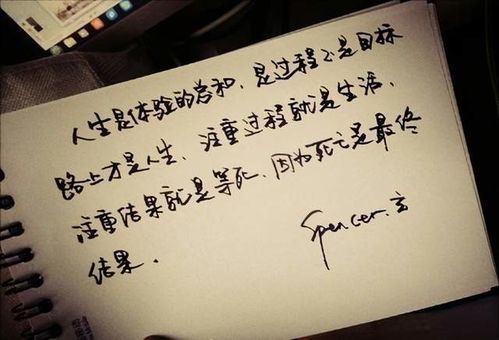 人生是体验的总和，是过程不是目标
路上才是人生，注重过程就是生活，
注重结果就是等死，因为死亡是最终
结果．
Spencer.玄